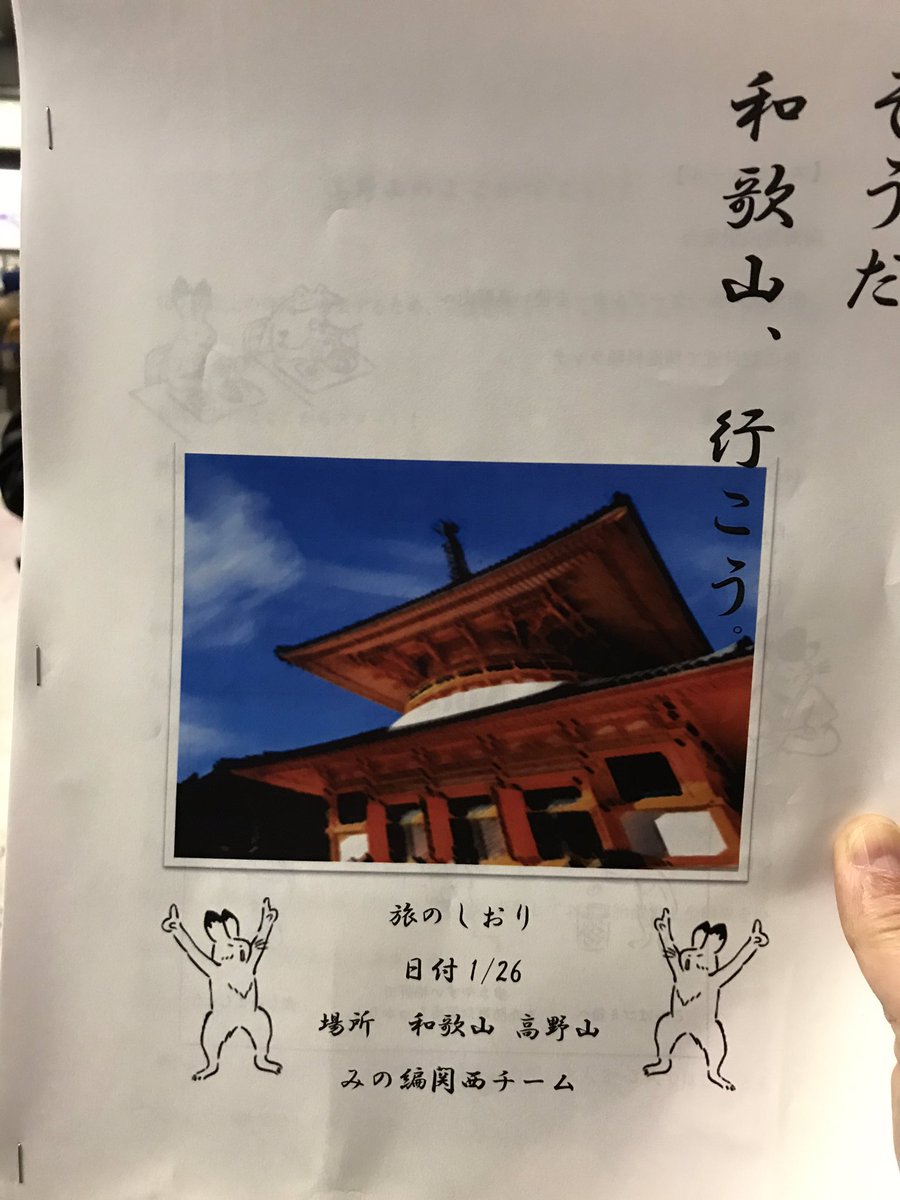 そうだ
和歌山、行こう。
旅のしおり
日付 1/26
場所　和歌山 高野山
みの編関西チーム